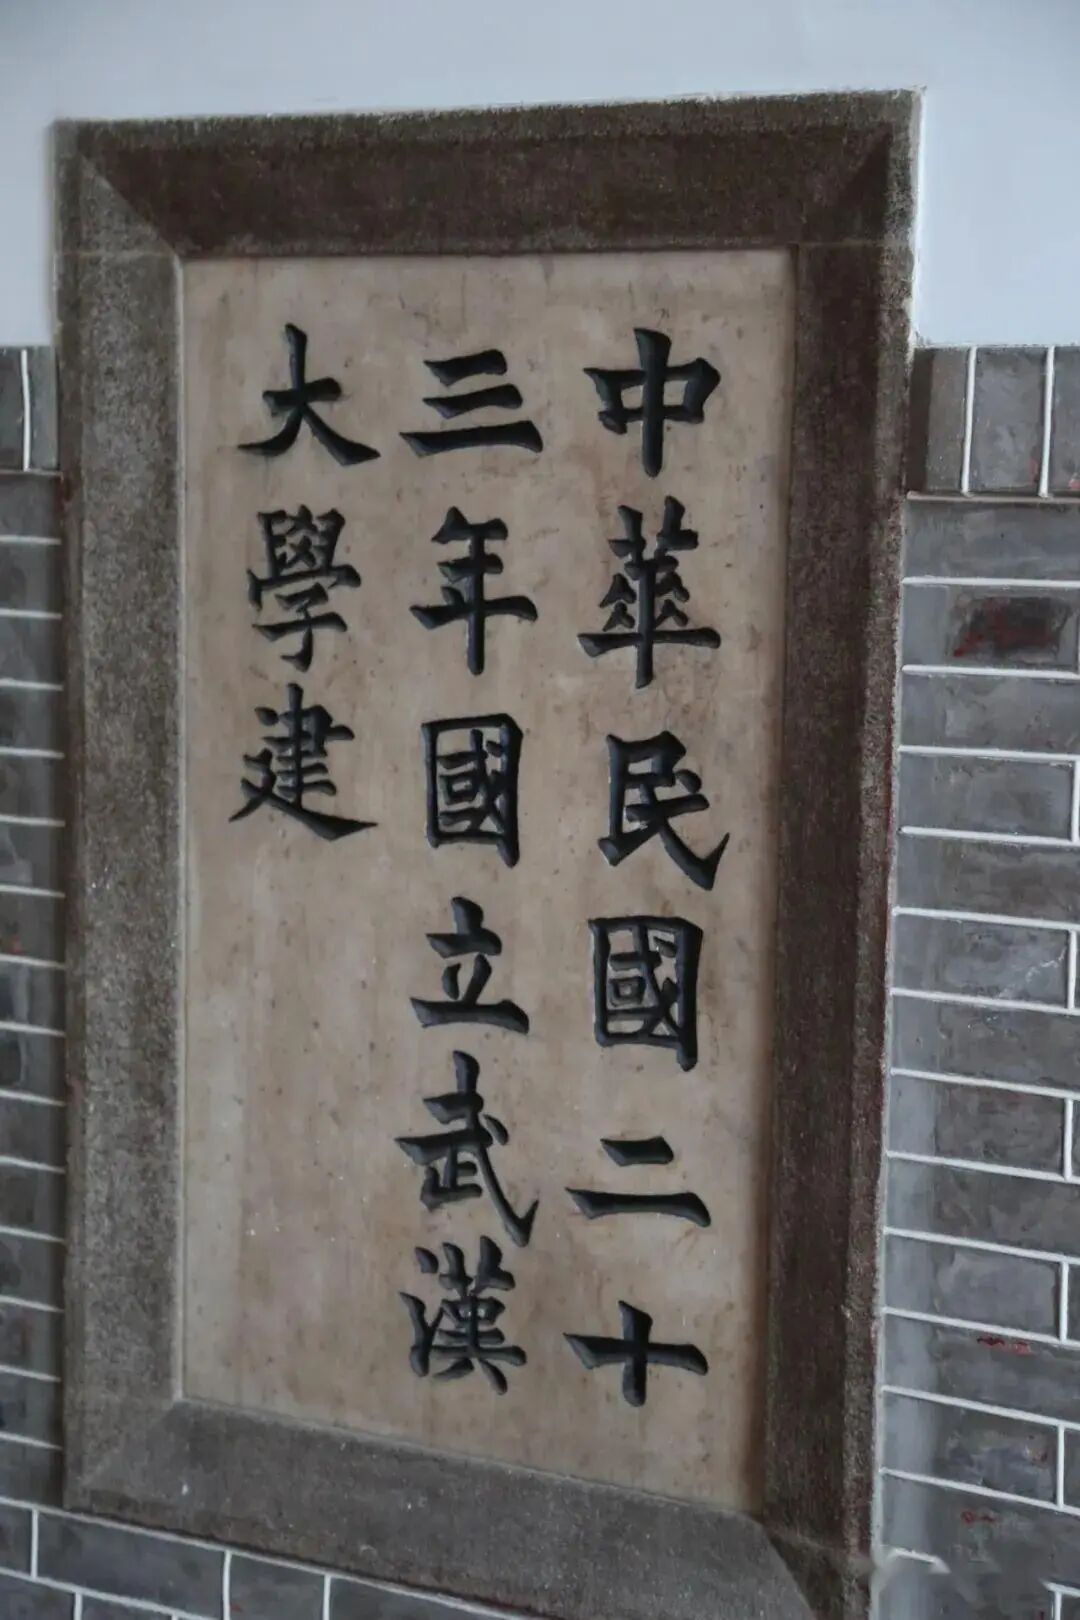 中華民國二十
三年國立武漢
大學建